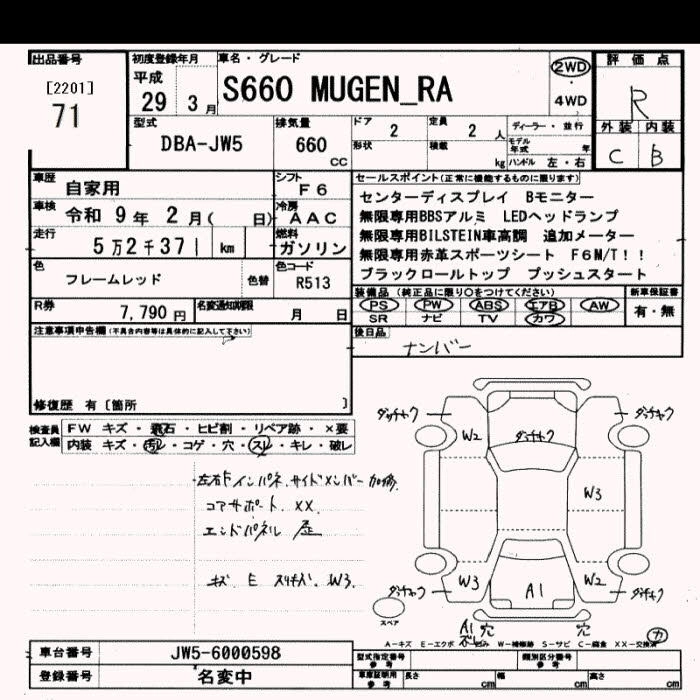 出品番号
[2201]
71
初度登録年月
平成
29 3 月
車名・グレード
S660 MUGEN_RA
2WD
・
4WD
評価点
R
外装 内装
C B
型式
DBA-JW5
排気量
660
CC
ドア
2
定員
2 人
形状
積載
kg
ディーラー・並行
モデル年式 年
ハンドル 左・右
車歴
自家用
シフト
F6
車検
令和 9年 2月( 日)
冷房
AAC
走行
5万2千371 km
燃料
ガソリン
色
フレームレッド
色替
色コード
R513
R券
7,790 円
名変通知期限
月 日
セールスポイント(正常に機能するものに限ります)
センターディスプレイ Bモニター
無限専用BBSアルミ LEDヘッドランプ
無限専用BILSTEIN車高調 追加メーター
無限専用赤革スポーツシート F6M/T!!
ブラックロールトップ プッシュスタート
装備品(純正品に限り○をつけてください)
新車保証書
PS PW ABS エアB AW
SR ナビ TV カワ
有・無
後日品
ナンバー
注意事項申告欄(不具合内容等は具体的に記入して下さい)
修復歴 有〔箇所 〕
検査員
記入欄
FW キズ・飛石・ヒビ割・リペア跡・×要
内装 キズ・汚レ・コゲ・穴・スレ・キレ・破レ
左右Fインパネ.サイドメンバー加修.
コアサポート XX.
エンドパネル 歪
キズ E スリキズ W3.
ダッチャク
ダッチャク
W2
ダッチャク
W3
W3
W2
A1
ダッチャク
ダッチャク
スペア
A1
穴
穴
カ
A-キズ E-エクボ U-凹み W-補修跡 S-サビ C-腐食 XX-交換済
車台番号
JW5-6000598
登録番号
名変中
型式指定番号
参考
類別区分番号
参考
車庫証明用
参考
長さ cm
幅 cm
高さ cm